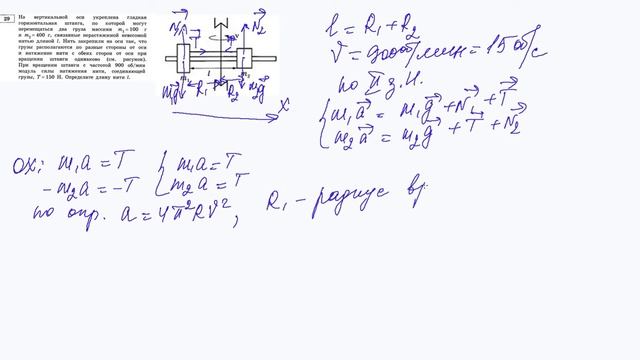 29
На вертикальной оси укреплена гладкая
горизонтальная штанга, по которой могут
перемещаться два груза массами m₁=100 г
и m₂=400 г, связанные нерастяжимой невесомой
нитью длиной l. Нить закрепили на оси так, что
грузы располагаются по разные стороны от оси
и натяжение нити с обеих сторон от оси при
вращении штанги одинаково (см. рисунок).
При вращении штанги с частотой 900 об/мин
модуль силы натяжения нити, соединяющей
грузы, T=150 Н. Определите длину нити l.
N₁ T N₂
m₁g R₁ R₂ m₂g
X
l = R₁ + R₂
ν = 900 об/мин = 15 об/с
по II з.Н.
{ m₁a = m₁g + N₁ + T
{ m₂a = m₂g + T + N₂
OX: m₁a = T { m₁a = T
-m₂a = -T { m₂a = T
по опр. a = 4π²Rν², R₁ - радиус вр